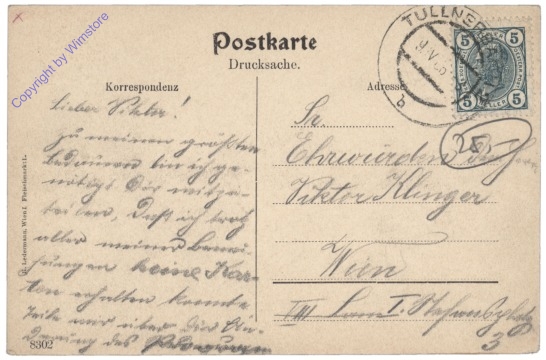 Copyright by Wimstore
Postkarte
Drucksache.
Korrespondenz
Adresse
TULLNERB
9 V
b
5 5
5 5
HELLER
25
Lieber Viktor!
Zu meinem größten
Bedauern bin ich ge-
nötigt Dir mitzu-
teilen, daß ich trotz
aller meiner Bemü-
hungen keine Kar-
ten erhalten konnte
Teile mir über die
des
Sr.
Ehrwürden
Viktor Klinger
Wien
I. Stefansplatz
3
C. Ledermann, Wien I. Fleischmarkt
8302